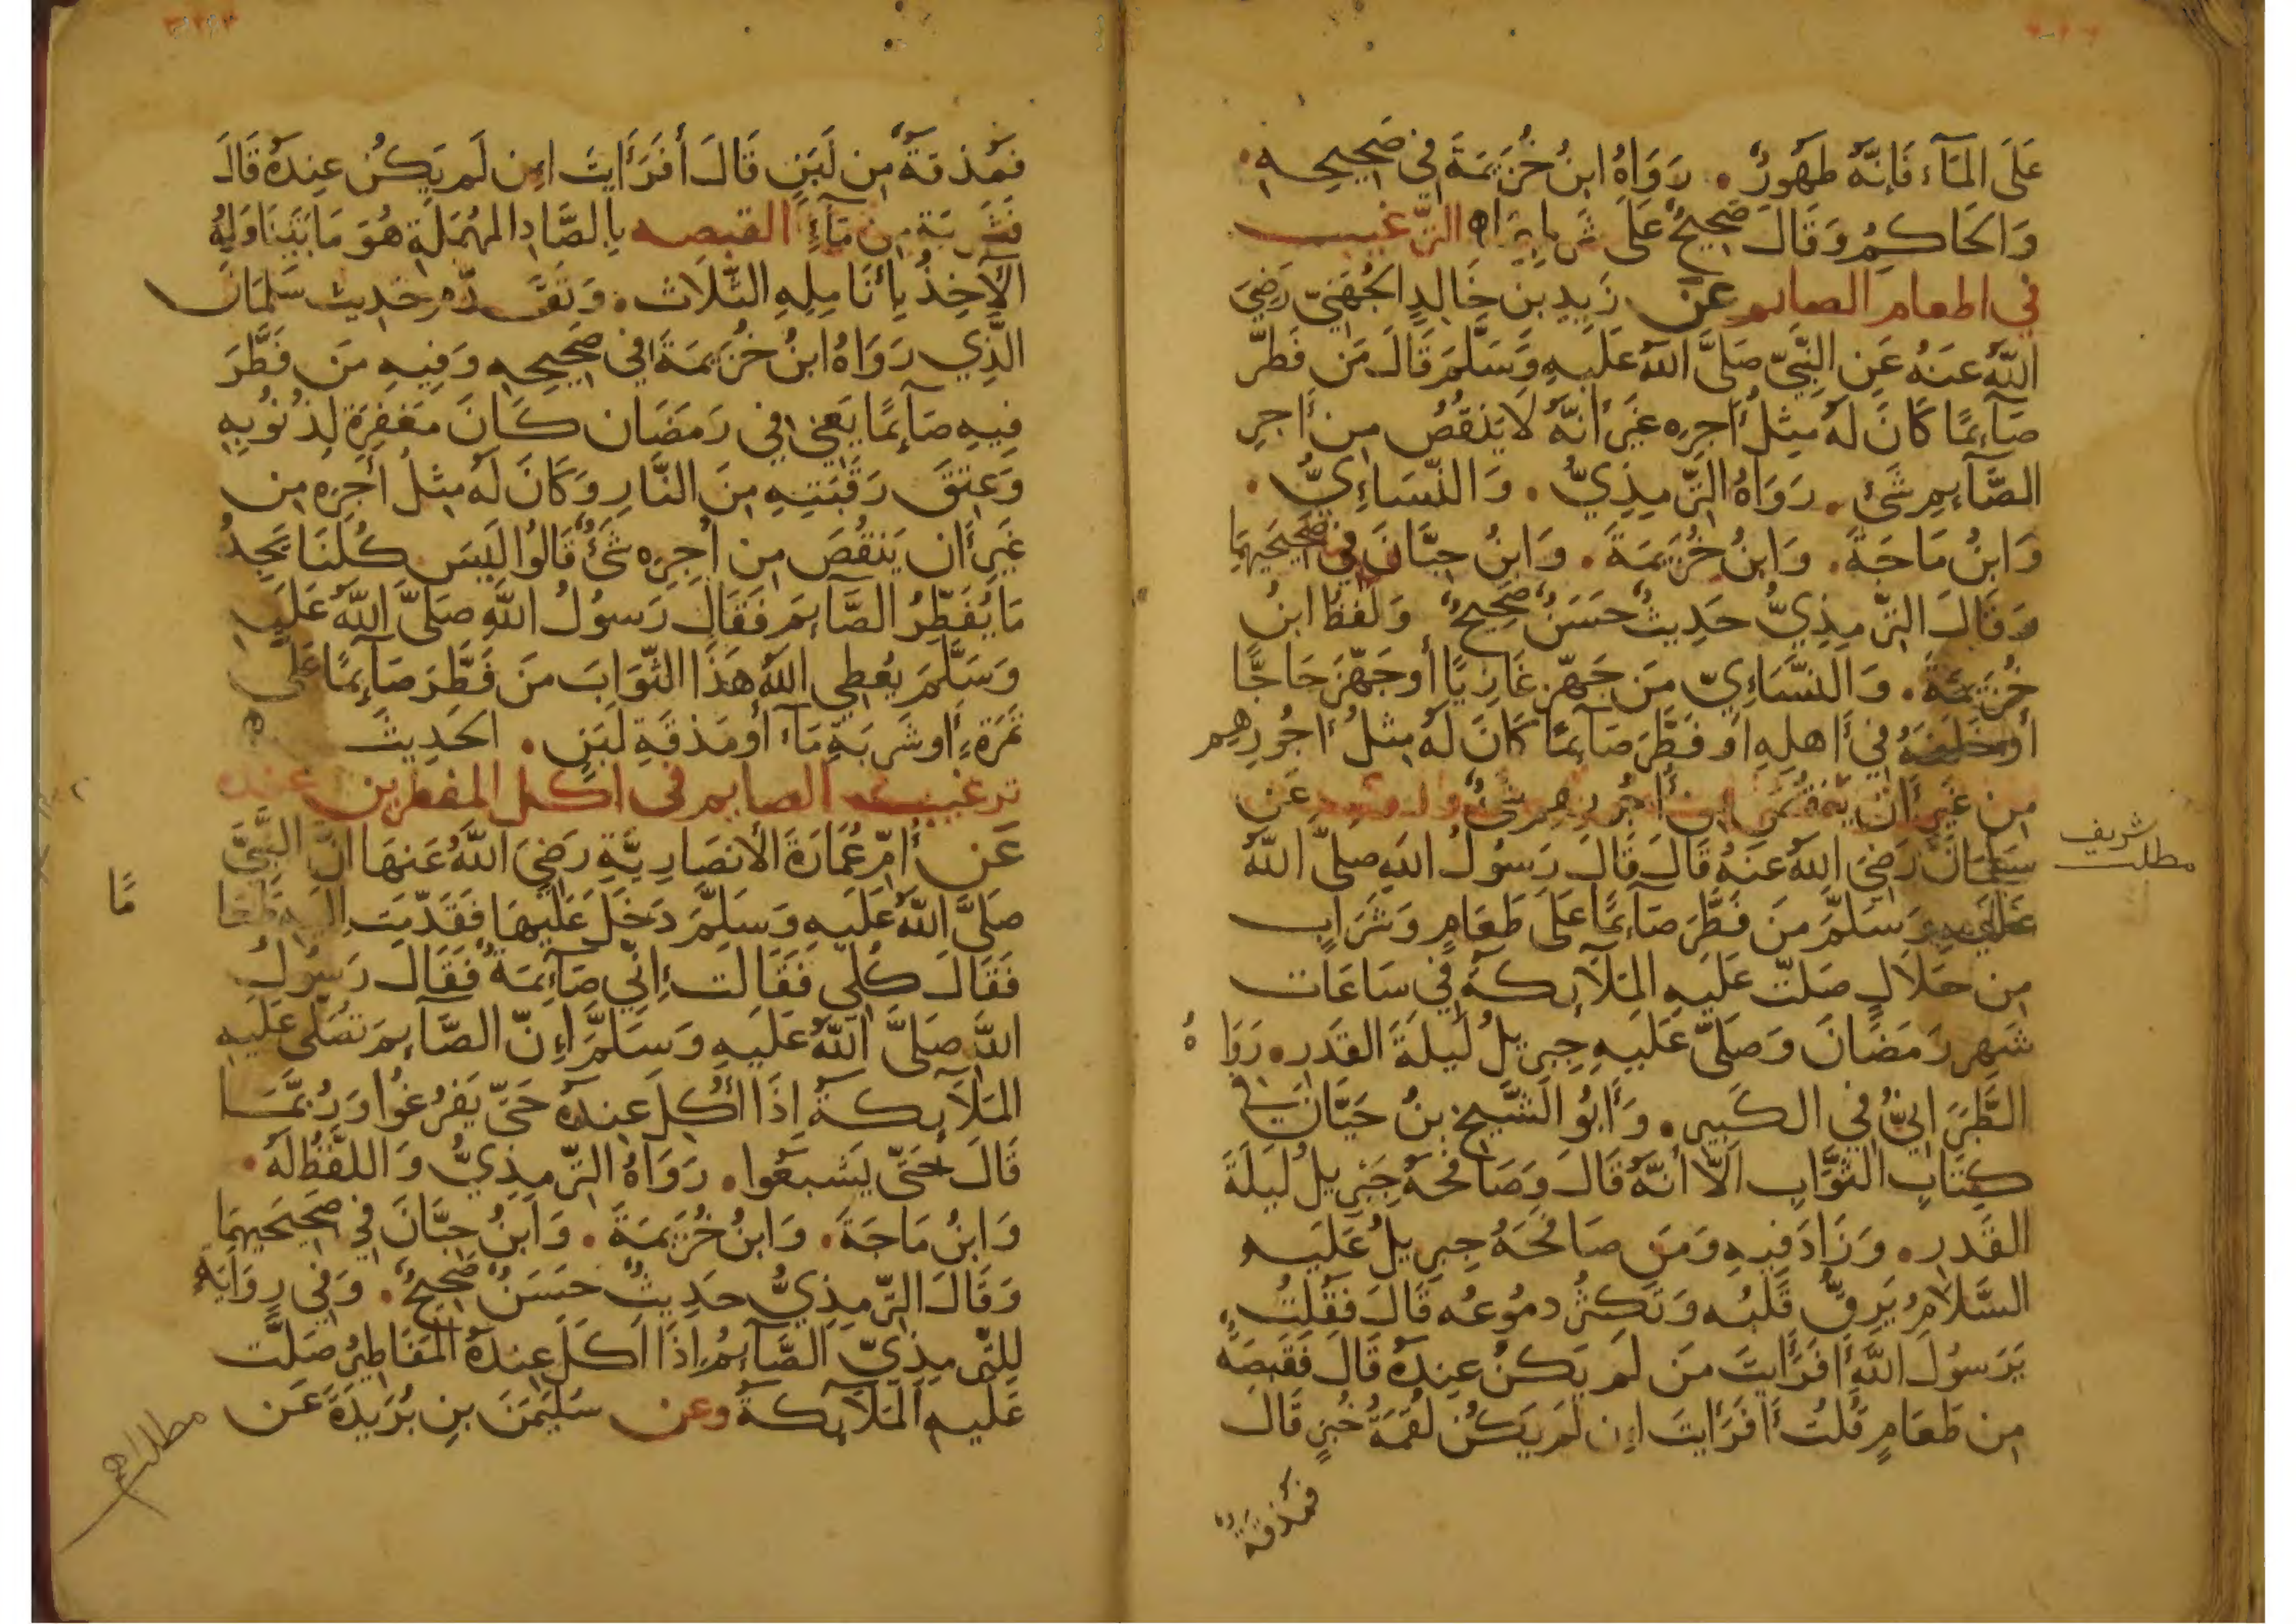 عَلَى المَآءِ فَإِنَّهُ طَهُورٌ . رَوَاهُ ابنُ خُزَيمَةَ في صَحِيحِهِ .
وَالحَاكِمُ وَقَالَ صَحِيحٌ عَلَى شَرطِهِمَا الترغيب
في اطعام الصايم عَن زَيدِ بنِ خَالِدٍ الجُهَنِيِّ رَضِيَ
اللَّهُ عَنهُ عَنِ النَّبِيِّ صَلَّى اللَّهُ عَلَيهِ وَسَلَّمَ قَالَ مَن فَطَّرَ
صَآئِمًا كَانَ لَهُ مِثلُ أَجرِهِ غَيرَ أَنَّهُ لَا يَنقُصُ مِن أَجرِ
الصَّآئِمِ شَيء . رَوَاهُ التِّرمِذِيُّ . وَالنَّسَاءِيُّ .
وَابنُ مَاجَةَ . وَابنُ خُزَيمَةَ . وَابنُ حِبَّانَ في صَحِيحَيهِمَا
وَقَالَ التِّرمِذِيُّ حَدِيثٌ حَسَنٌ صَحِيحٌ وَلَفظُ ابنُ
خُزَيمَةَ . وَالنَّسَاءِيّ مَن جَهَّزَ غَازِيًا أَو جَهَّزَ حَاجًّا
أَو خَلَفَهُ فِي أَهلِهِ أَو فَطَّرَ صَآئِمًا كَانَ لَهُ مِثلُ أُجُورِهِم
مِن غَيرِ أَن يَنقُصَ مِن أُجُورِهِم شَيءٌ عَن
سَلمَانَ رَضِيَ اللَّهُ عَنهُ قَالَ قَالَ رَسُولُ اللَّهِ صَلَّى اللَّهُ
عَلَيهِ وَسَلَّمَ مَن فَطَّرَ صَآئِمًا عَلَى طَعَامٍ وَشَرَابٍ
مِن حَلَالٍ صَلَّت عَلَيهِ المَلَآئِكَةُ فِي سَاعَات
شَهرِ رَمَضَانَ وَصَلَّى عَلَيهِ جِبرِيلُ لَيلَةَ القَدرِ . رَوَاهُ
الطَّبَرَانِيُّ فِي الكَبِيرِ . وَأَبُو الشَّيخِ بنُ حَيَّانَ في
كِتَابِ الثَّوَابِ اَلَّا أَنَّهُ قَالَ وَصَافَحَهُ جِبرِيلُ لَيلَةَ
القَدرِ . وَزَادَ فِيهِ وَمَن صَافَحَهُ جِبرِيلُ عَلَيهِ
السَّلَامُ يَرِقُّ قَلبُه وَتَكثُرُ دمُوعُه قَالَ فَقُلتُ
يَرَسُولَ اللَّهِ أَفَرَأَيتَ مَن لَم يَكُن عِندَهُ قَالَ فَقَبصَةٌ
مِن طَعَامٍ قُلتُ أَفَرَأَيتَ إِن لَم يَكُن لُقمَةُ خُبزٍ قَالَ
فَمَذقَةٌ
مطلب شريف
فَمَذقَةٌ مِن لَبَنٍ قَالَ أَفَرَأَيتَ إِن لَم يَكُن عِندَهُ قَالَ
فَشَربَةٌ مِن مَآءٍ القبصه بِالصَّادِ المُهمَلَةِ هُوَ مَا يَتَنَاوَلُهُ
الآخِذُ بِأَنَامِلِهِ الثَّلَاث . وَتَقَدَّمَ حَدِيث سَلمَانَ
الَّذِي رَوَاهُ ابنُ خُزَيمَةَ في صَحِيحِهِ وَفِيهِ مَن فَطَّرَ
فِيهِ صَآئِمًا يَعنِي فِي رَمَضَان كَانَ مَغفِرَةً لِذُنُوبِهِ
وَعِتقَ رَقَبَتِهِ مِنَ النَّارِ وَكَانَ لَهُ مِثلُ أَجرِهِ مِن
غَيرِ أَن يَنقُصَ مِن أَجرِهِ شَيءٌ قَالُوا لَيسَ كُلُّنَا يَجِدُ
مَا يُفَطِّرُ الصَّآئِمَ فَقَالَ رَسُولُ اللَّهِ صَلَّى اللَّهُ عَلَيهِ
وَسَلَّمَ يُعطِي اللَّهُ هَذَا الثَّوَابَ مَن فَطَّرَ صَآئِمًا عَلَى
تَمرَةٍ أَو شَربَةِ مَآءٍ أَو مَذقَةِ لَبَنٍ . الحَدِيثَ
ترغيب الصايم في اكل المفطرين عنده
عَن أُمِّ عُمَارَةَ الأَنصَارِيَّةِ رَضِيَ اللَّهُ عَنهَا انَّ النَّبِيَّ
صَلَّى اللَّهُ عَلَيهِ وَسَلَّمَ دَخَلَ عَلَيهَا فَقَدَّمَت إِلَيهِ طَعَامًا
فَقَالَ كُلِي فَقَالَت إِنِّي صَآئِمَةٌ فَقَالَ رَسُولُ
اللَّهِ صَلَّى اللَّهُ عَلَيهِ وَسَلَّمَ إِنَّ الصَّآئِمَ تُصَلِّي عَلَيهِ
المَلَآئِكَةُ إِذَا أُكِلَ عِندَهُ حَتَّى يَفرُغُوا وَرُبَّمَا
قَالَ حَتَّى يَشبَعُوا . رَوَاهُ التِّرمِذِيُّ وَاللَّفظُ لَهُ .
وَابنُ مَاجَةَ . وَابنُ خُزَيمَةَ . وَابنُ حِبَّانَ فِي صَحِيحَيهِمَا
وَقَالَ التِّرمِذِيُّ حَدِيثٌ حَسَنٌ صَحِيحٌ . وَفِي رِوَايَةٍ
لِلتِّرمِذِيِّ الصَّآئِمُ إِذَا اَكَلَ عِندَهُ المَفَاطِيرُ صَلَّت
عَلَيهِ المَلَآئِكَةُ وعن سُلَيمَنَ بنِ بُرَيدَةَ عَن
مطلب